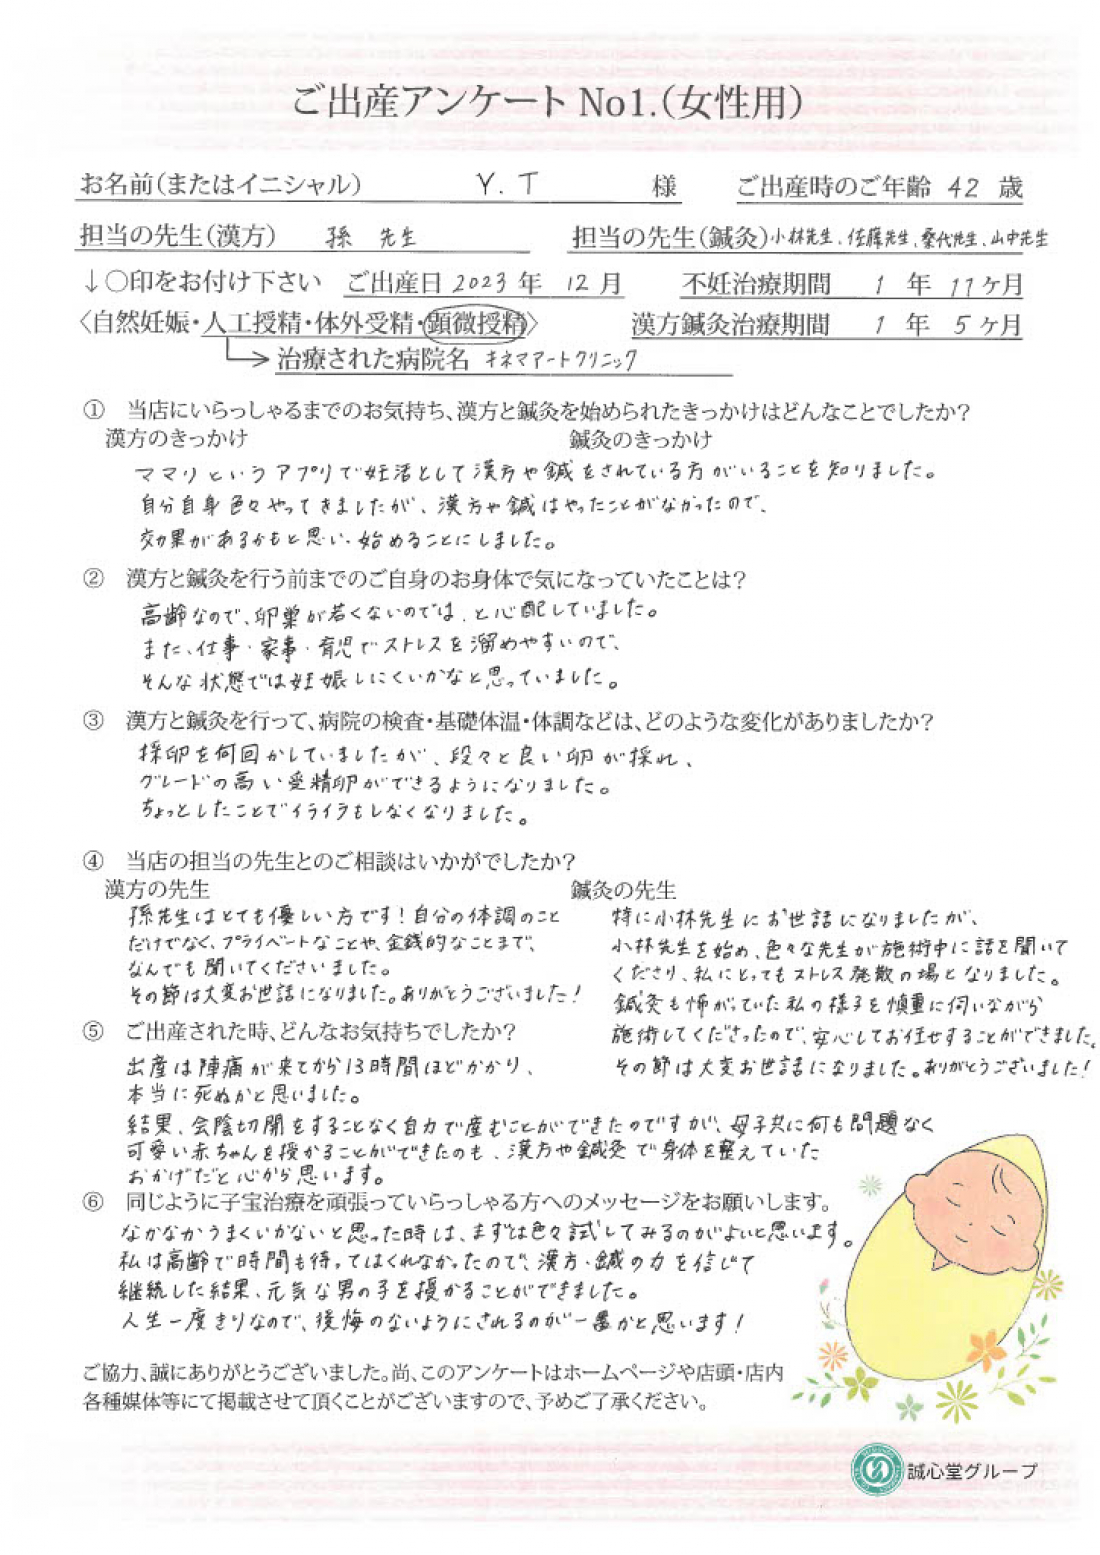 ご出産アンケート No1.(女性用)
お名前(またはイニシャル) Y.T 様 ご出産時のご年齢 42 歳
担当の先生(漢方) 孫 先生 担当の先生(鍼灸)小林先生、佐藤先生、桑代先生、山中先生
↓○印をお付け下さい ご出産日 2023 年 12 月 不妊治療期間 1 年 11ヶ月
〈自然妊娠・人工授精・体外受精・顕微授精〉 漢方鍼灸治療期間 1 年 5ヶ月
治療された病院名 キネマアートクリニック
① 当店にいらっしゃるまでのお気持ち、漢方と鍼灸を始められたきっかけはどんなことでしたか?
漢方のきっかけ 鍼灸のきっかけ
ママリというアプリで妊活として漢方や鍼をされている方がいることを知りました。
自分自身色々やってきましたが、漢方や鍼はやったことがなかったので、
効果があるかもと思い、始めることにしました。
② 漢方と鍼灸を行う前までのご自身のお身体で気になっていたことは?
高齢なので、卵巣が若くないのでは、と心配していました。
また、仕事・家事・育児でストレスを溜めやすいので、
そんな状態では妊娠しにくいかなと思っていました。
③ 漢方と鍼灸を行って、病院の検査・基礎体温・体調などは、どのような変化がありましたか?
採卵を何回かしていましたが、段々と良い卵が採れ、
グレードの高い受精卵ができるようになりました。
ちょっとしたことでイライラもしなくなりました。
④ 当店の担当の先生とのご相談はいかがでしたか?
漢方の先生
孫先生はとても優しい方です!自分の体調のこと
だけでなく、プライベートなことや、金銭的なことまで、
なんでも聞いてくださいました。
その節は大変お世話になりました。ありがとうございました!
鍼灸の先生
特に小林先生にお世話になりましたが、
小林先生を始め、色々な先生が施術中に話を聞いて
くださり、私にとってもストレス発散の場となりました。
鍼灸も怖がっていた私の様子を慎重に伺いながら
施術してくださったので、安心してお任せすることができました。
その節は大変お世話になりました。ありがとうございました!
⑤ ご出産された時、どんなお気持ちでしたか?
出産は陣痛が来てから13時間ほどかかり、
本当に死ぬかと思いました。
結果、会陰切開をすることなく自力で産むことができたのですが、母子共に何も問題なく
可愛い赤ちゃんを授かることができたのも、漢方や鍼灸で身体を整えていた
おかげだと心から思います。
⑥ 同じように子宝治療を頑張っていらっしゃる方へのメッセージをお願いします。
なかなかうまくいかないと思った時は、まずは色々試してみるのがよいと思います。
私は高齢で時間も待ってはくれなかったので、漢方・鍼の力を信じて
継続した結果、元気な男の子を授かることができました。
人生一度きりなので、後悔のないようにされるのが一番かと思います!
ご協力、誠にありがとうございました。尚、このアンケートはホームページや店頭・店内
各種媒体等にて掲載させて頂くことがございますので、予めご了承ください。
誠心堂グループ